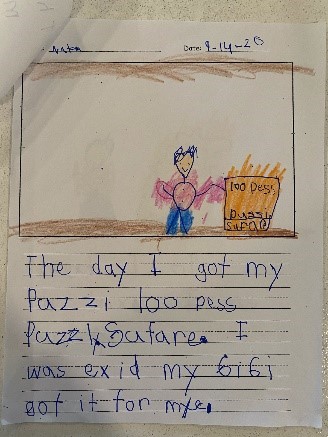 Date: 9-14-20
100 pess
puzzl
Sufare
The day I got my
Pazzi 100 pess
puzzly Sufare. I
was exid my bibi
got it for mye.